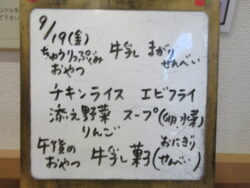 9/19(金)
ちゅうりっぷぐみ 牛乳 まがり
おやつ せんべい
チキンライス エビフライ
添え野菜 スープ(卵水菜)
りんご おにぎり
午後の 牛乳 菓子(せんべい)
おやつ